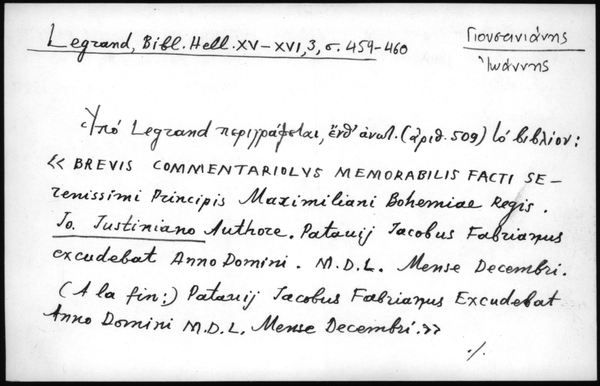 Legrand, Bibl. Hell. XV-XVI, 3, σ. 459-460
Γιουστινιάνης
Ἰωάννης
Ὑπό Legrand περιγράφεται, ἔνθ' ἀνωτ. (ἀριθ. 509) τό βιβλίον:
« BREVIS COMMENTARIOLVS MEMORABILIS FACTI SE-
renissimi Principis Maximiliani Bohemiae Regis.
Jo. Justiniano Authore. Patauij Jacobus Fabrianus
excudebat Anno Domini. M.D.L. Mense Decembri.
(A la fin:) Patauij Jacobus Fabrianus Excudebat
Anno Domini M.D.L. Mense Decembri.»
./.